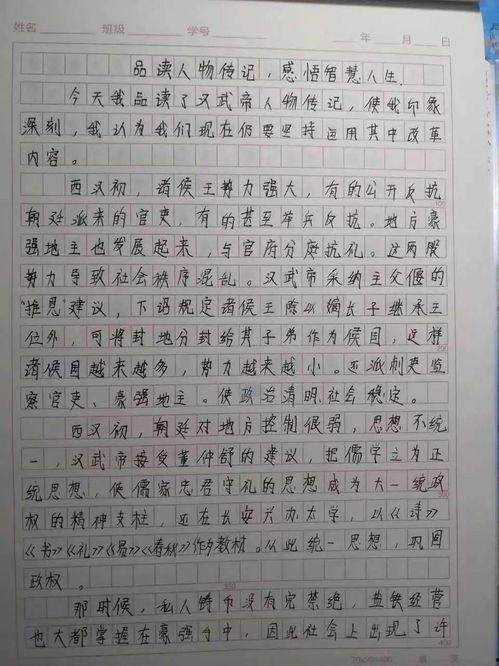 姓名 班级 学号 年 月 日
品读人物传记，感悟智慧人生.
今天我品读了汉武帝人物传记，使我印象
深刻，我认为我们现在仍要坚持运用其中改革
内容。
西汉初，诸侯王势力强大，有的公开反抗
朝廷派来的官吏，有的甚至举兵反抗。地方豪
强地主也发展起来，与官府分庭抗礼。这两股
势力导致社会秩序混乱。汉武帝采纳主父偃的
"推恩"建议，下诏规定诸侯王除以嫡长子继承王
位外，可将封地分封给其子弟作为侯国，这样
诸侯国越来越多，势力越来越小。还派刺吏监
察官吏、豪强地主。使政治清明，社会稳定。
西汉初，朝廷对地方控制很弱，思想不统
一，汉武帝接受董仲舒的建议，把儒学立为正
统思想，使儒家忠君守礼的思想成为大一统政
权的精神支柱，还在长安兴办太学，以《诗》
《书》《礼》《易》《春秋》作为教材。从此统一思想，巩固
政权。
那时候，私人铸币没有完禁绝，盐铁经营
也大都掌握在豪强手中，因此社会上出现了许
100
200
300
350
400
20×20=400 第 页